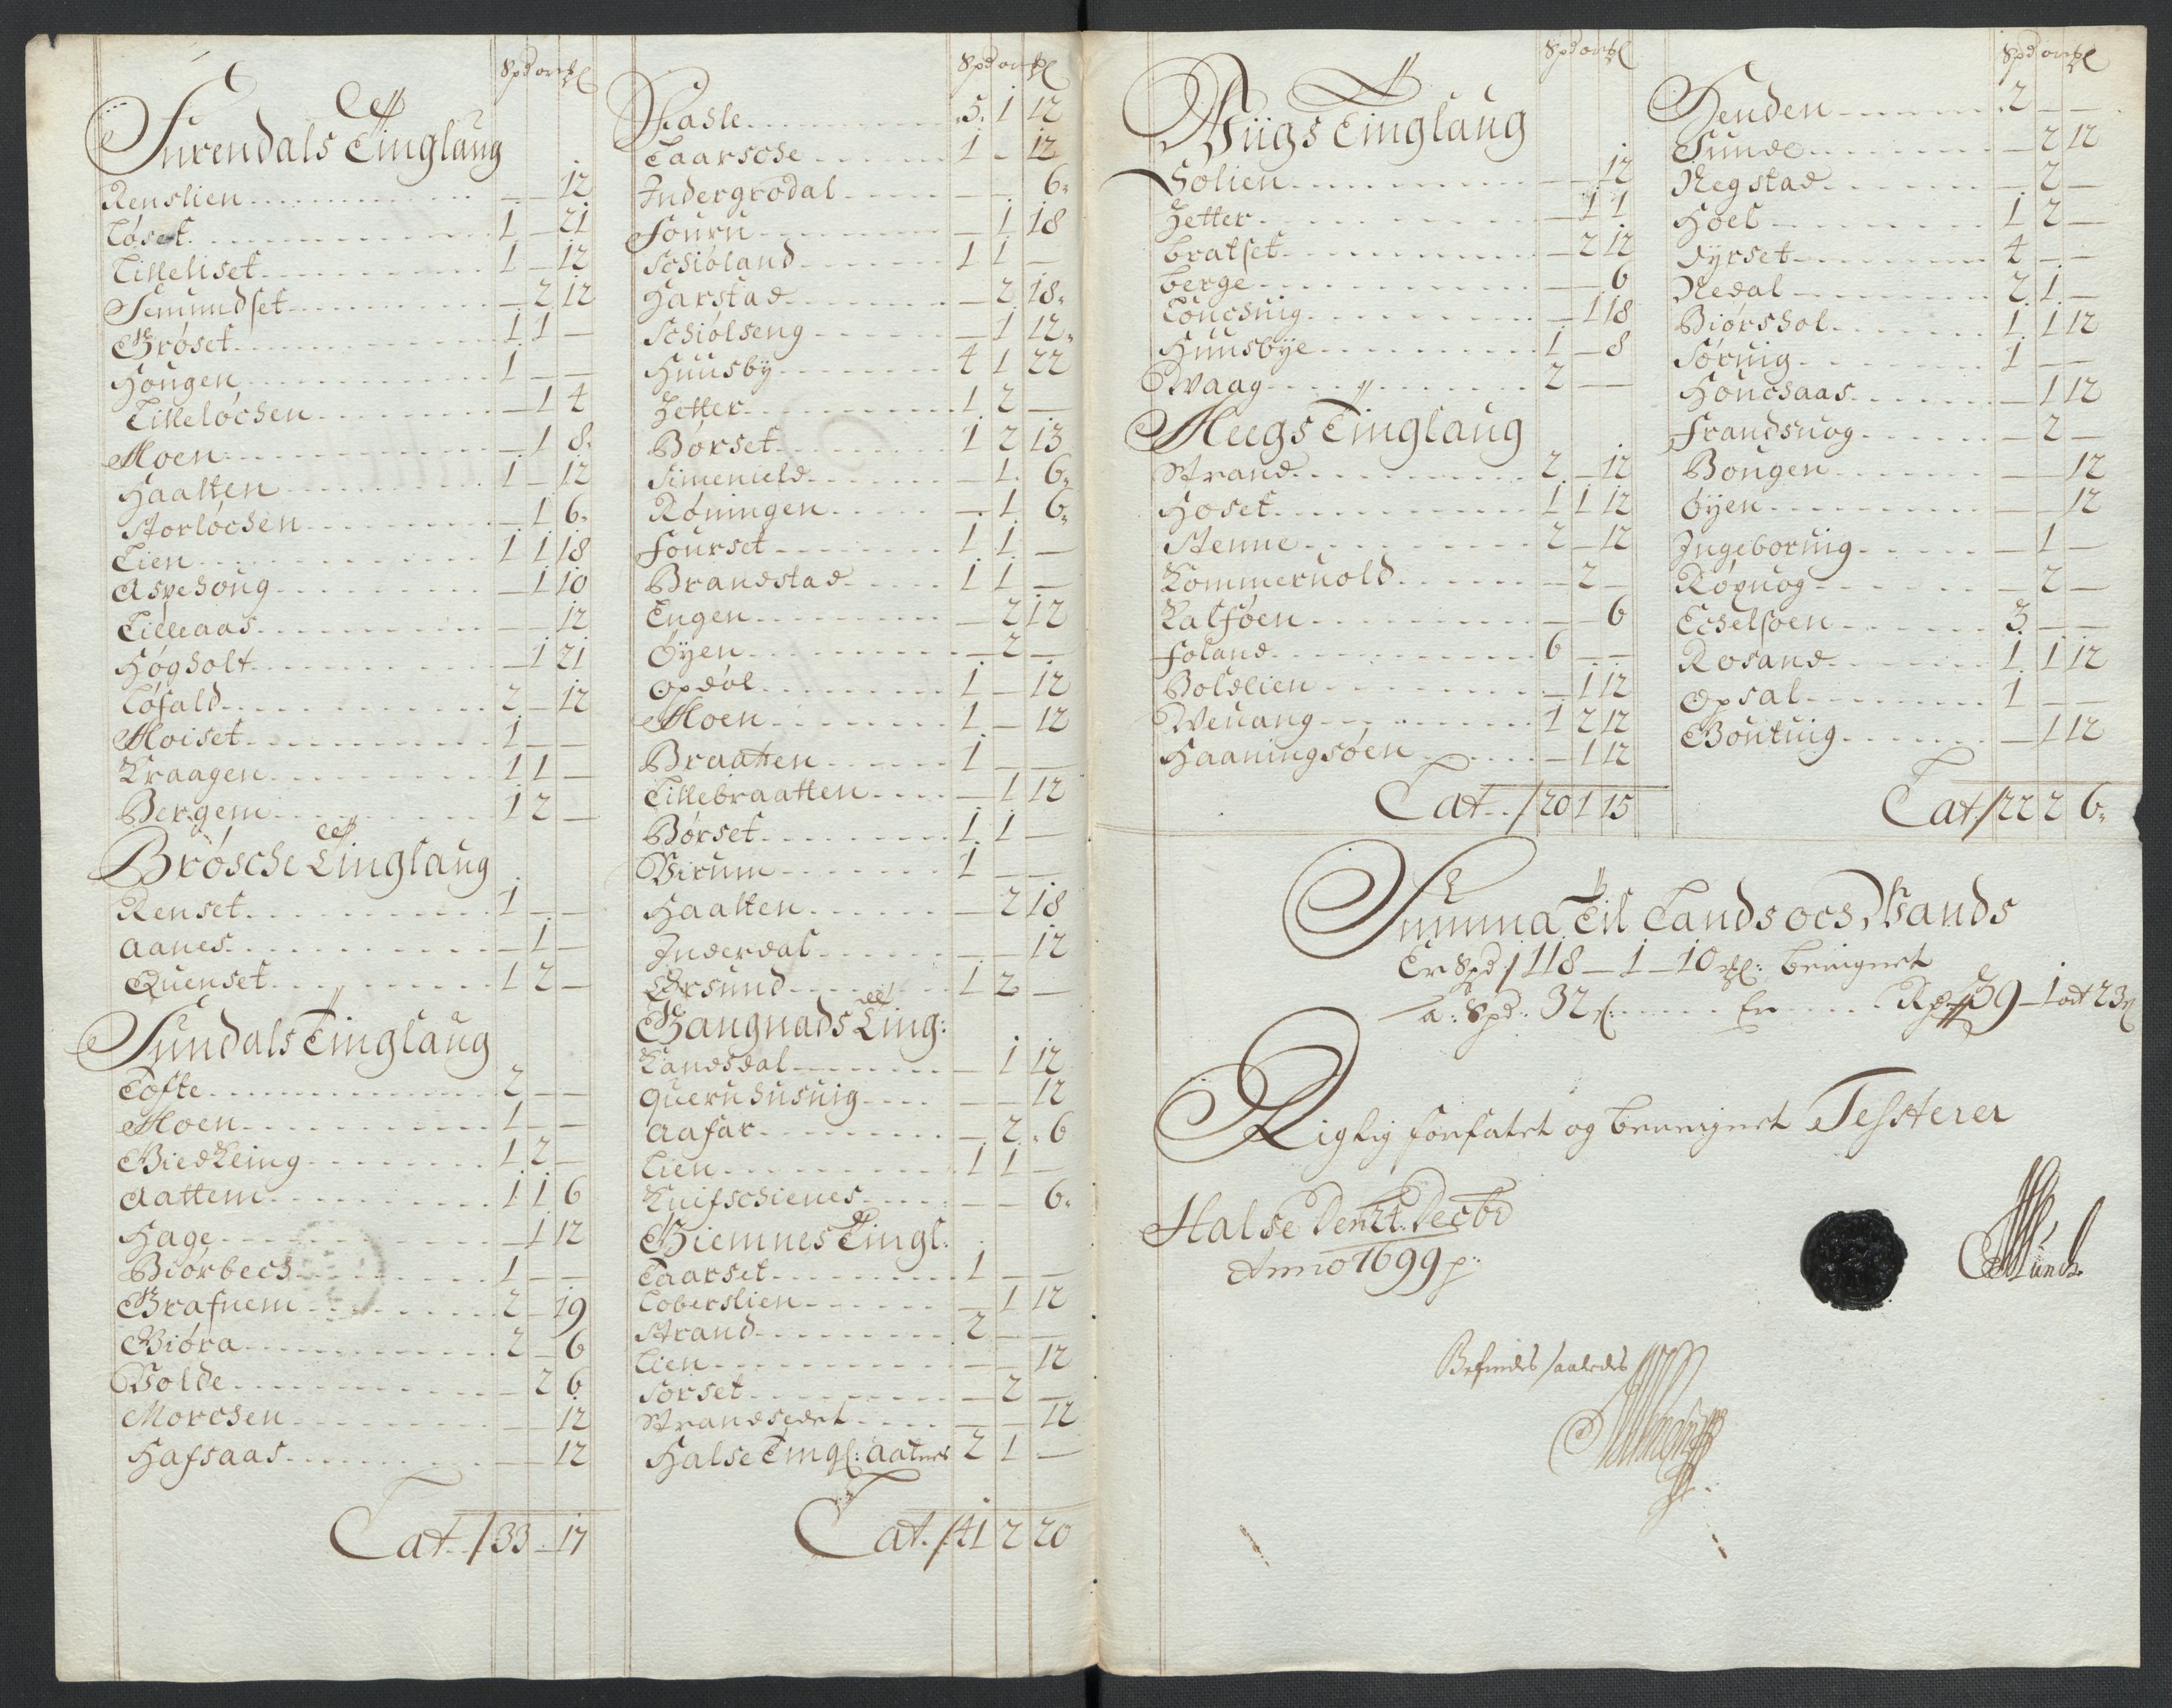 Spd ort ꝯ
Surendals Tinglaug
Renslien - - 12
Løset 1 - 21
Lilleliset 1 - 12
Semundset - 2 12
Grøset 1 1 -
Hougen 1 - -
Lilleløchen - 1 4
Moen - 1 8
Haalten 1 - 12
Storløchen - 1 6
Lien 1 1 18
Aspehoug - 1 10
Lilleaas - - 12
Høgholt - 1 21
Løfald 2 - 12
Moiset 1 - -
Kraagen 1 1 -
Bergem 1 2 -
Brøsche Tinglaug
Renset 1 - -
Aanes - 1 -
Quenset 1 2 -
Sundals Tinglaug
Tofte 2 - -
Moen 1 - -
Giedkeing 1 2 -
Aattem 1 1 6
Hage - 1 12
Biørbech 1 - -
Grafnem 2 - 19
Giøra 2 - 6
Volde - 2 6
Morchen - - 12
Hafsaas - - 12
Lat. / 33 - 17
Spd ort
Fasle 5 1 12
Taarsose 1 - 12
Indergrodal - - 6
Fouru - 1 18
Schiøland 1 1 -
Harstad - 2 18
Schiølseng - 1 12
Huusby 4 1 22
Hetter 1 2 -
Børset 1 2 13
Simeneld - 1 6
Røningen - 1 6
Fourset 1 1 -
Brandstad 1 1 -
Engen - 2 12
Øyen - 2 -
Opdøl 1 - 12
Moen 1 - 12
Braatten 1 - -
Lillebraatten - 1 12
Børset 1 1 -
Virum 1 - -
Haalten - 2 18
Inderdal - - 12
Ørsund 1 2 -
Gangnads Ting:
Landsdal - 1 12
Quernhusuig - - 12
Aafar - 2 6
Lien 1 1 -
Knifschienes - - 6
Giemnes Tingl:
Taarset 1 - -
Toberslien - 1 12
Strand 2 - -
Lien - - 12
Sørset - 2 -
Strandsedet - - 12
Halse Tingl: Aatnes 2 1 -
Lat. / 41 2 20
Spd ort
Wiigs Tinglaug
Solien - - 12
Hetter - 1 1
Bratset - 2 12
Berge - - 6
Louchuig - 1 18
Huusbye 1 - 8
Waag 2 - -
Meegs Tinglaug
Strand 2 - 12
Hoset 1 1 12
Stenne 2 - 12
Kommeruold - 2 -
Kalføen - - 6
Foland 6 - -
Boldlien - 1 12
Weuang 1 2 12
Haaningsøen - 1 12
Lat. / 20 1 15
Spd ort
Henden 2 - -
Sunde - 2 12
Negstad - 2 -
Hoel 1 2 -
Dyrset 4 - -
Nedal 2 1 -
Biørshol 1 1 12
Søruig 1 - -
Houchaas - 1 12
Frandsuog - 2 -
Bougen - - 12
Øyen - - 12
Ingeboruig - 1 -
Røxuog - 2 -
Echelsøen 3 - -
Rosand 1 1 12
Opsal 1 - -
Boutuig - 1 12
Lat / 22 2 6
Summa Til Lands och Vands
Er Spd / 118 - 1 - 10 : beregnet
a: Spd: 32 Er 39 - 1 ort 23
Rigtig forfatet og beregnet Testerer
Halse Den 24. Decbr
Anno 1699 p:
Munch
Befindes saaledes